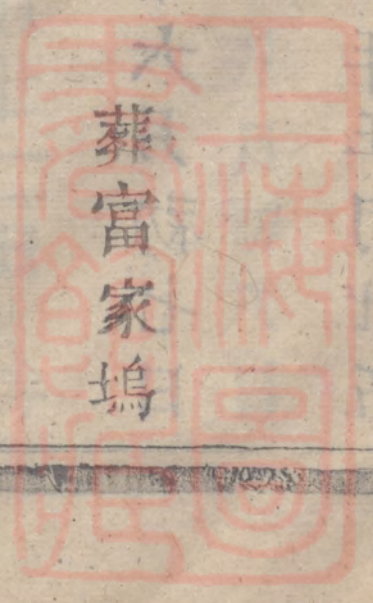 葬富家塢
上海圖
書館藏